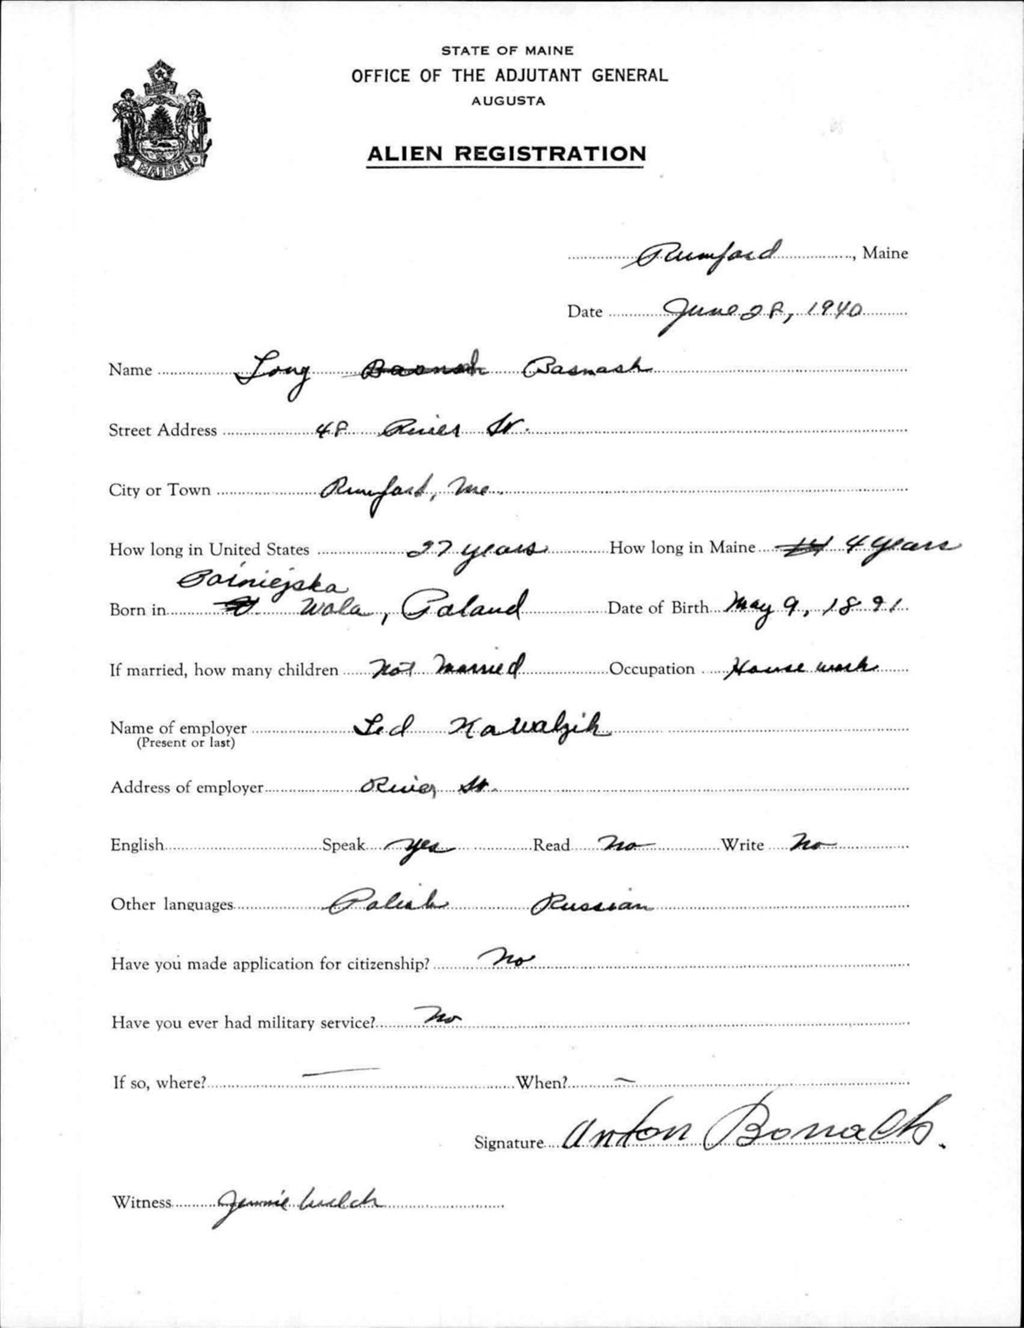 STATE OF MAINE
OFFICE OF THE ADJUTANT GENERAL
AUGUSTA
ALIEN REGISTRATION
Rumford, Maine
Date June 28, 1940
Name Tony Basnash
Street Address 48 River St.
City or Town Rumford, Me.
How long in United States 27 years How long in Maine 4 years
Born in Wola, Poland Date of Birth May 9, 1891
If married, how many children Not Married Occupation House work
Name of employer Ted Kowalzik
(Present or last)
Address of employer River St.
English Speak yes Read No Write No
Other languages Polish Russian
Have you made application for citizenship? No
Have you ever had military service? No
If so, where? — When? —
Signature Anton Bonach.
Witness Jennie Welch
MAINE